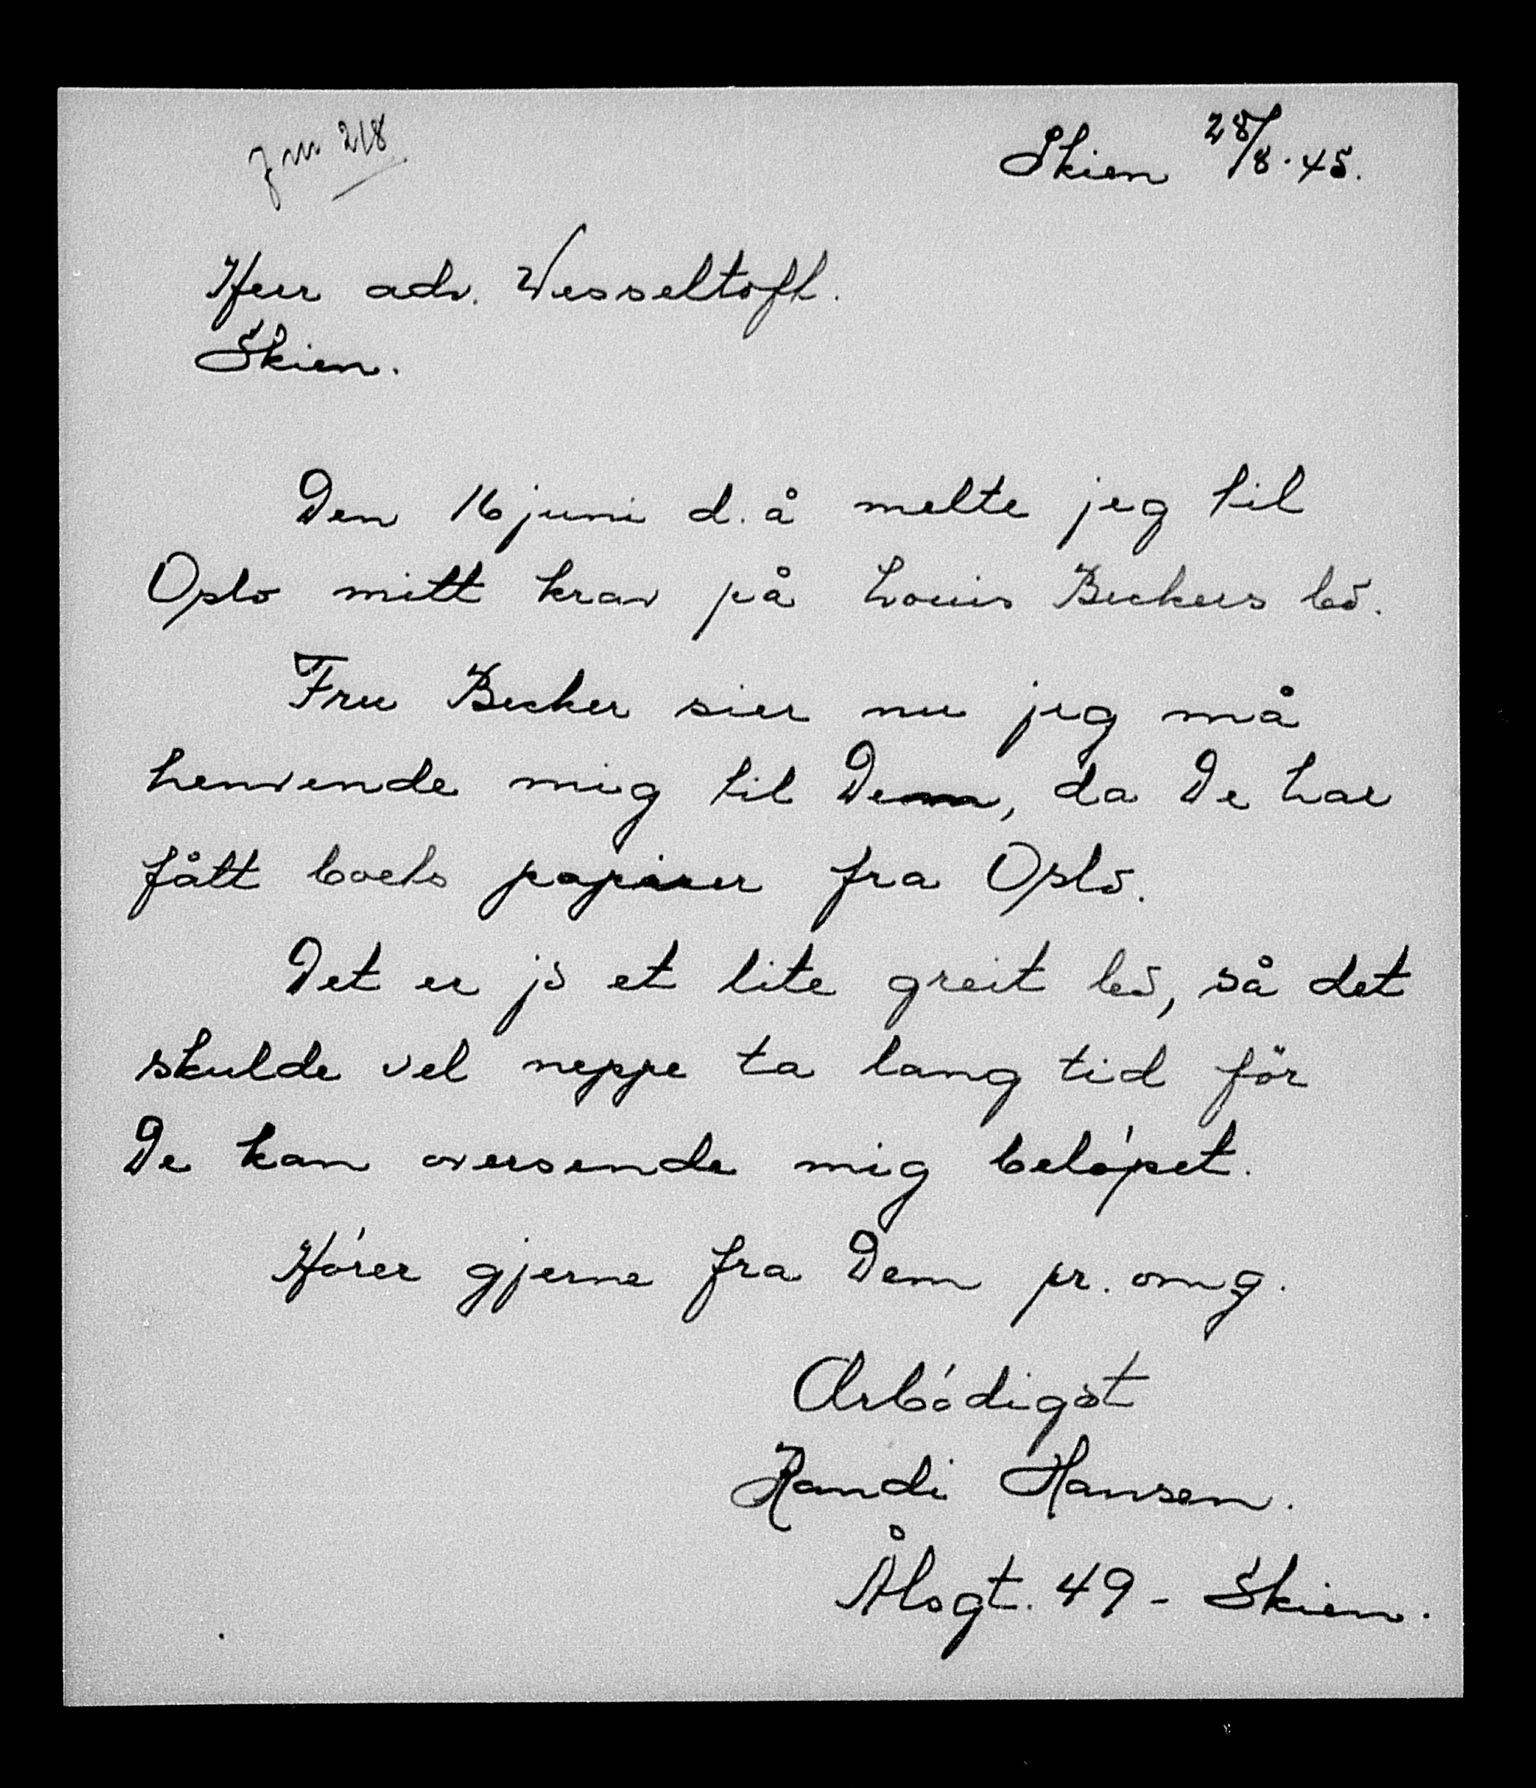 jnr 218
Skien 28/8.45.
Herr adv. Wesseltoft.
Skien.
Den 16 juni d.å melte jeg til
Oslo mitt krav på Louis Beckers bo.
Fru Becker sier nu jeg må
henvende mig til Dem, da De har
fått boets papirer fra Oslo.
Det er jo et lite greit bo, så det
skulde vel neppe ta lang tid för
De kan oversende mig beløpet.
Hører gjerne fra Dem pr. omg.
Ærbødigst
Randi Hansen.
Ålsgt. 49 - Skien.